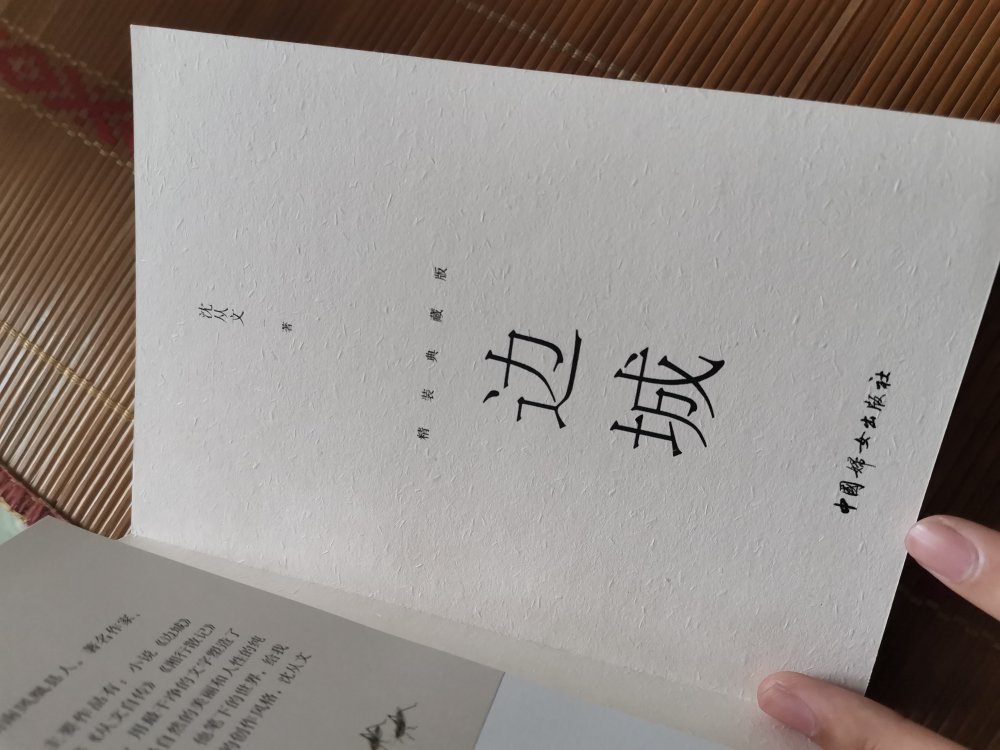 沈从文
著
精装典藏版
边城
中國婦女出版社
南凤凰县人。著名作家、
主要作品有：小说《边城》
《从文自传》《湘行散记》
用最干净的文字塑造了
自然的美丽和人性的纯
他笔下的世界，给我
的创作风格，沈从文